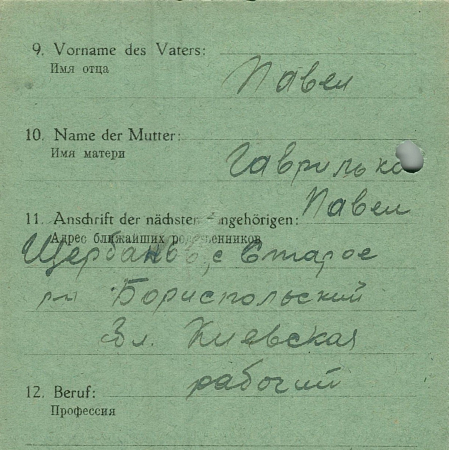 9. Vorname des Vaters:
Имя отца
Павел
10. Name der Mutter:
Имя матери
Гаврилько
11. Anschrift der nächsten Angehörigen:
Павел
Адрес ближайших родственников
с Старое
Бориспольский
Киевская
рабочий
12. Beruf:
Профессия